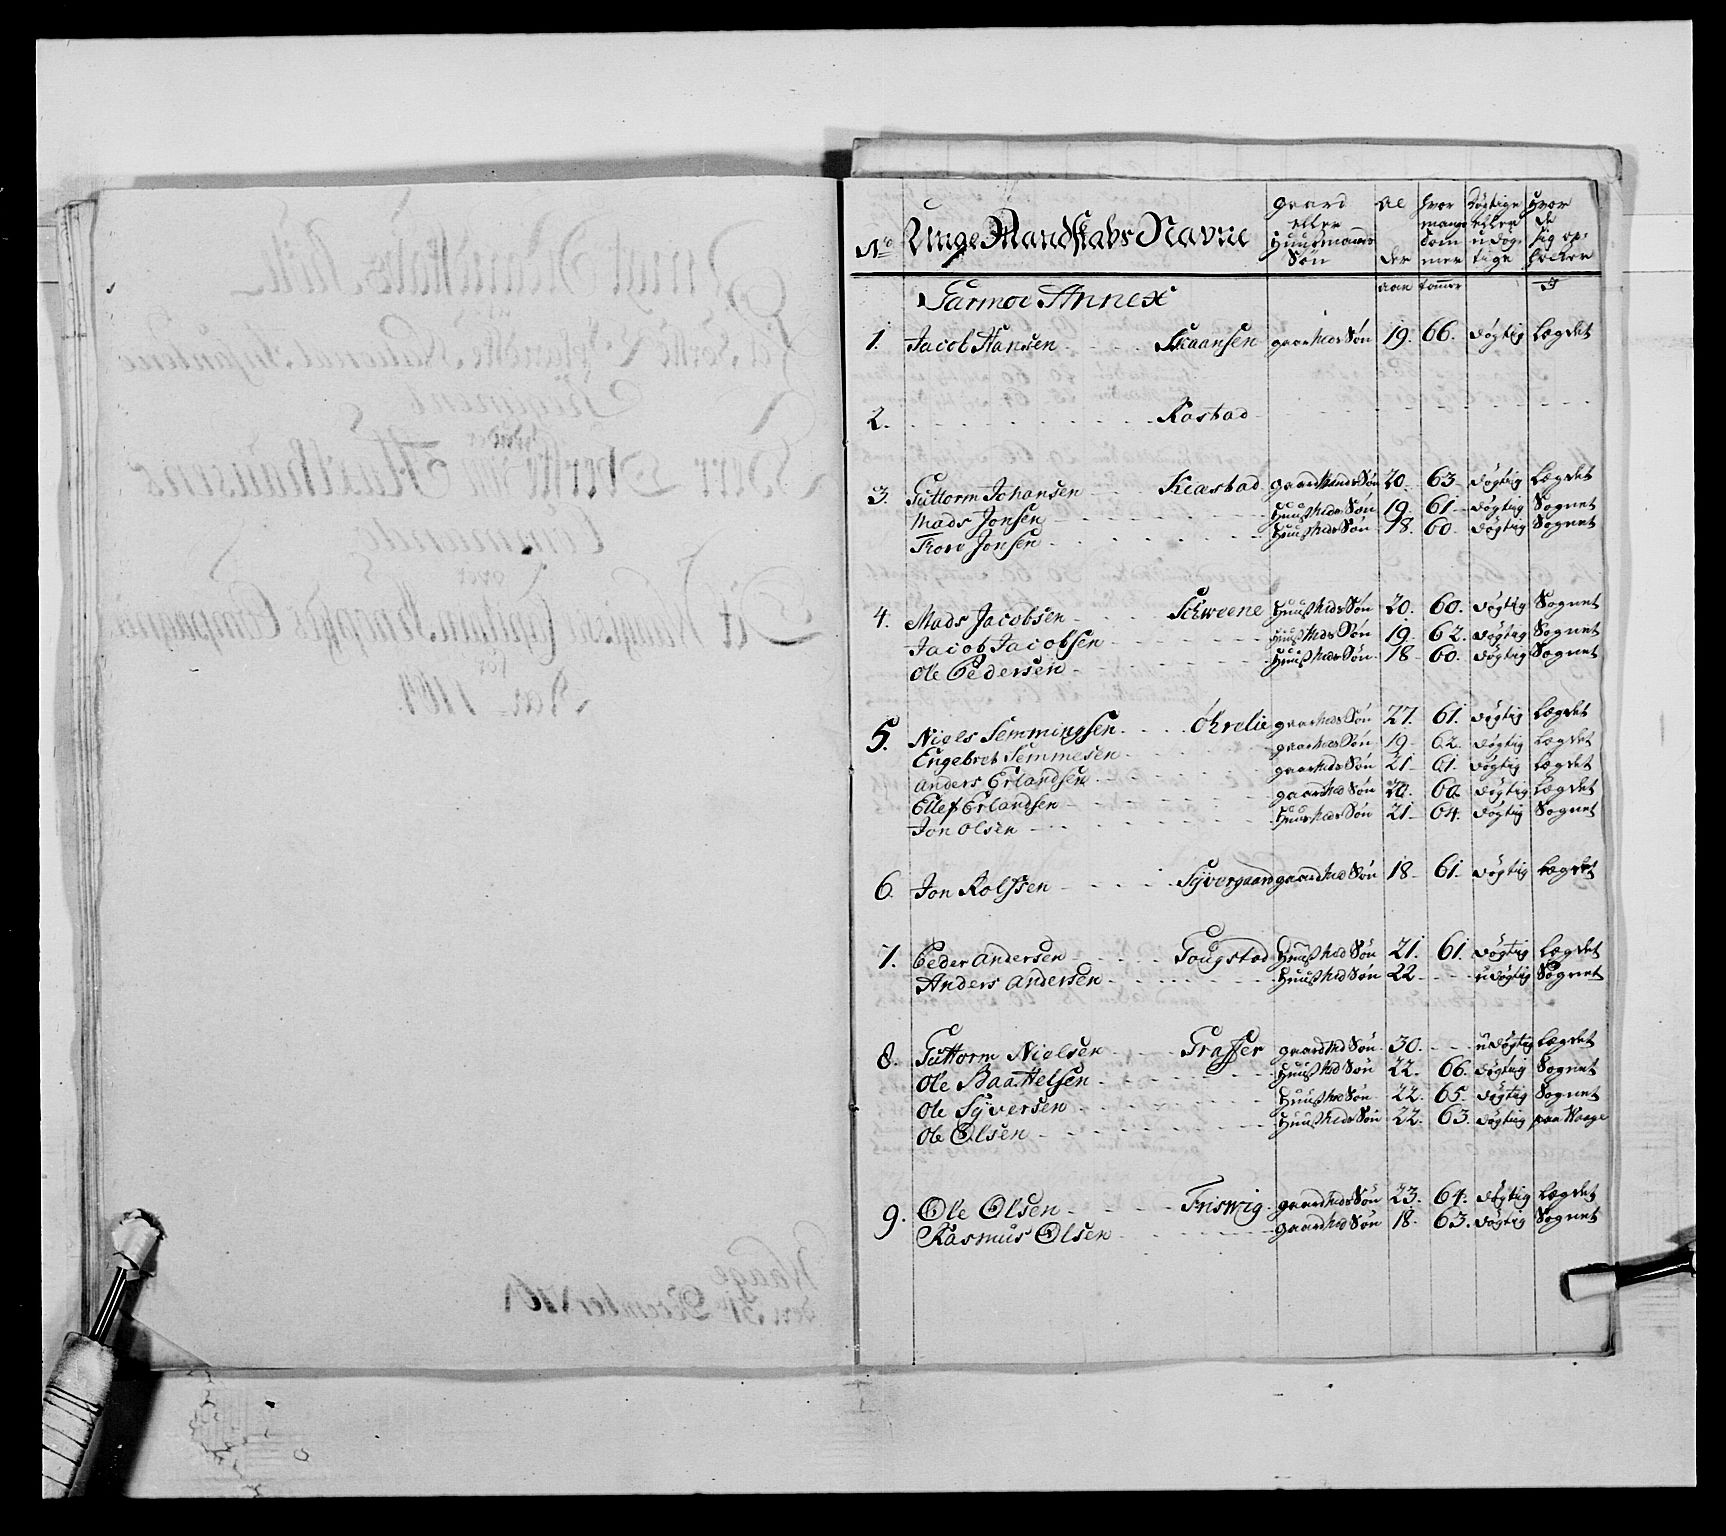 No Unge Mandskabs Navne gaard eller Huusmands Søn Alder hvor mange Tommer Døgtige eller udøgtige Hvor de sig op:holder
aar tommer I
Garmoe Annex
1. Jacob Hansen Skaansen gaardmds Søn 19. 66. døgtig Lægdet
2. Rostad
3. Guttorm Johansen Kiæstad gaardmands Søn 20. 63 døgtig Lægdet
Mads Jonsen Huusmds Søn 19. 61 døgtig Sognet
Tkore Jonsen Huusmds Søn 18. 60. døgtig Sognet
4. Mads Jacobsen Schweene Huusmds Søn 20. 60. døgtig Sognet
Jacob Jacobsen Huusmds Søn 19. 62. døgtig Sognet
Ole Pedersen Huusmds Søn 18 60. døgtig Sognet
5. Niels Semmingsen Øhrelie gaardmds Søn 27. 61. døgtig Lægdet
Engebret Semmesen gaardmds Søn 19. 62. døgtig Lægdet
Anders Erlandsen gaardmds Søn 21 61. døgtig Lægdet
Ellef Erlandsen gaardmds Søn 20. 60. døgtig Lægdet
Jon Olsen Huusmds Søn 21 64. døgtig Sognet
6. Jon Rolfsen Syvergaard gaardmd Søn 18 61. døgtig Lægdet
7. Peder Andersen Gougstad Huusmd Søn 21. 61. døgtig Lægdet
Anders Andersen Huusmd Søn 22 udøgtig Sognet
8. Guttorm Nielsen Graffer gaardmd Søn 30. udøgtig Lægdet
Ole Baattelsen Huusmd Søn 22. 66. døgtig Sognet
Ole Syversen Huusmd Søn 22. 65. døgtig Sognet
Ole Olsen Huusmds Søn 22. 63. døgtig paa Waage
9. Ole Olsen Friswig gaardmds Søn 23. 64. døgtig Lægdet
Rasmus Olsen gaardmd Søn 18. 63. døgtig Sognet